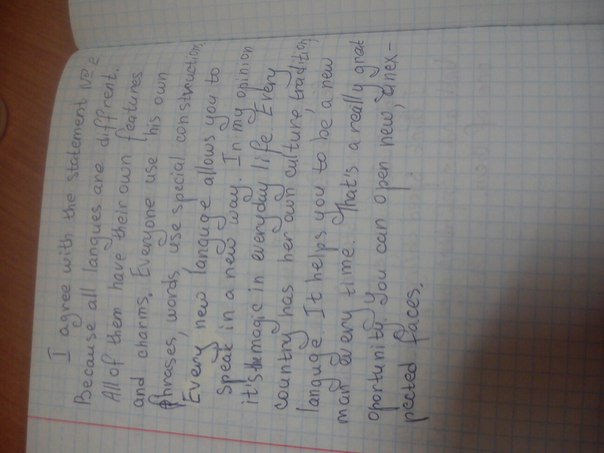 I agree with the statement № 2
Because all langues are diffrent.
All of them have their own features
and charms. Everyone use his own
phrases, words, use special construction,
Every new languge allows you to
speak in a new way. In my opinion
it's the magic in everyday life. Every
country has her own culture, tradition,
languge. It helps you to be a new
man every time. That's a really grat
oportunity. You can open new, unex-
pected faces.